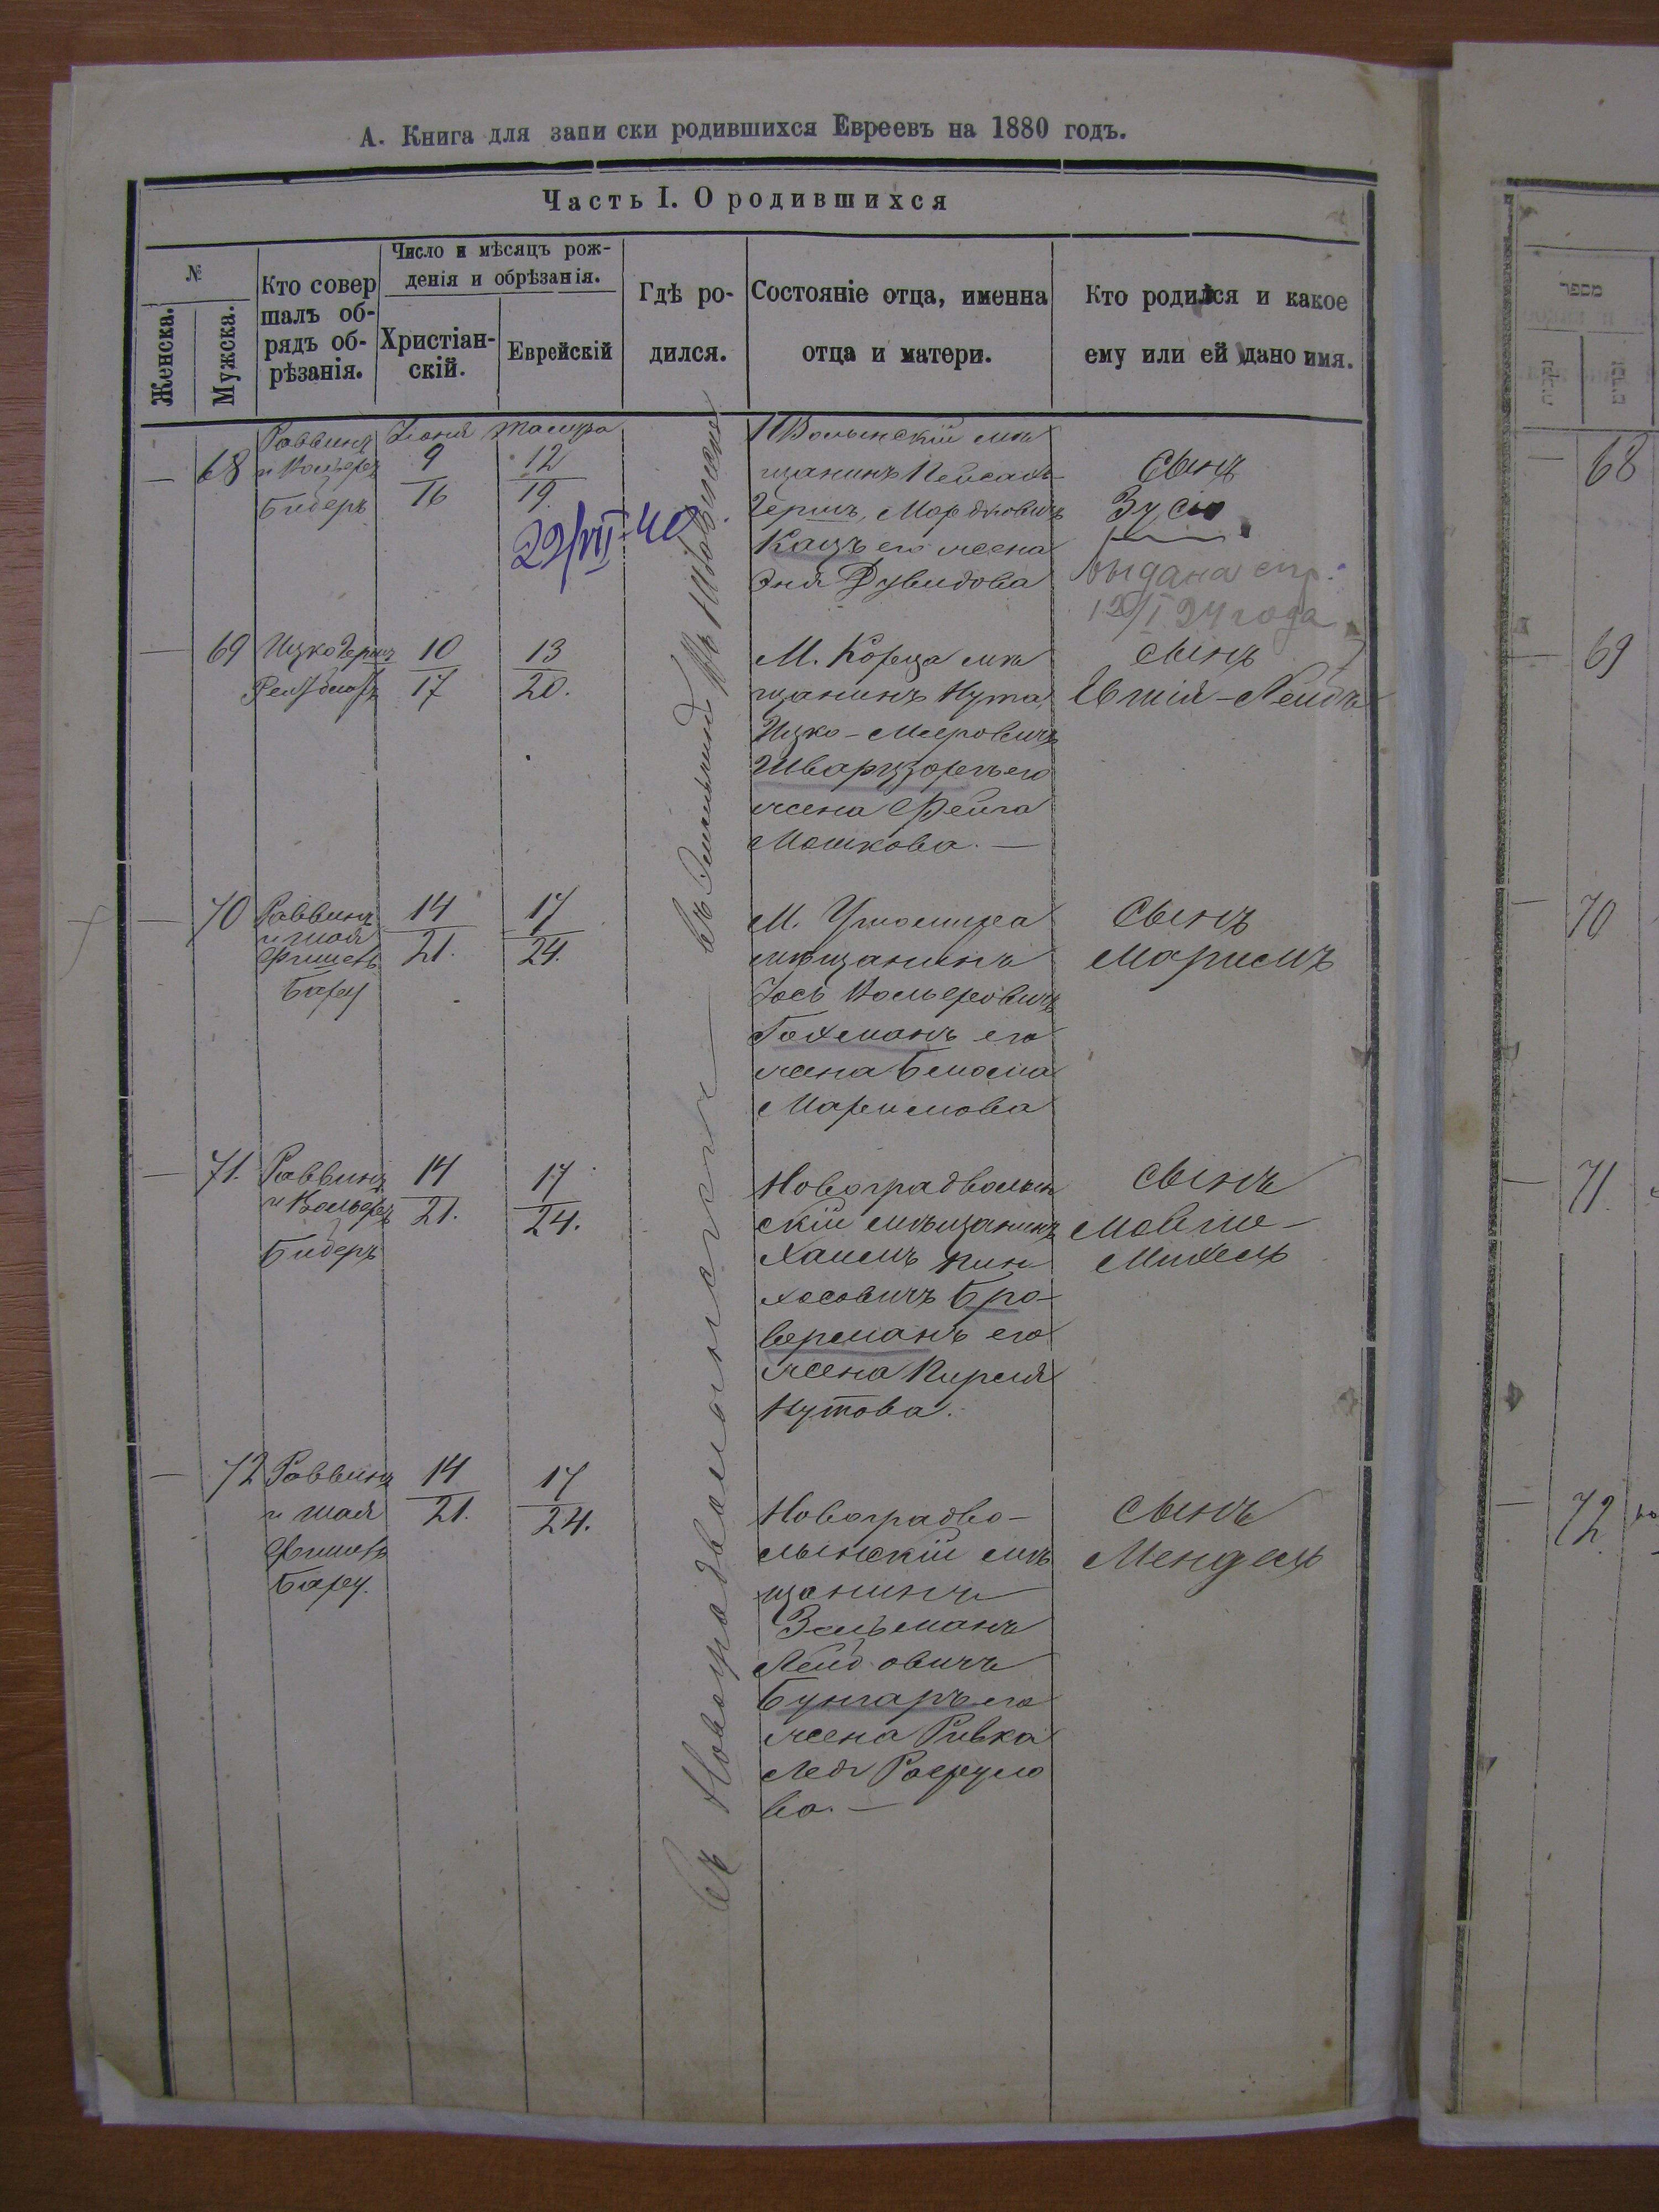 А. Книга для записки родившихся Евреевъ на 1880 годъ.
Часть I. О родившихся
№
Женска.
Мужска.
Кто совер
шалъ об-
рядъ об-
рѣзанія.
Число и мѣсяцъ рож-
денія и обрѣзанія.
Христіан-
скій.
Еврейскій
Гдѣ ро-
дился.
Состояніе отца, именна
отца и матери.
Кто родился и какое
ему или ей дано имя.
въ Новоградволынскѣ
—
68
Раввинъ
и Вольфъ
Бидеръ
Іюня
9
16
Тамуза
12
19.
22/VII-40
НВолынскій мѣ
щанинъ Пейсахъ
Гершъ Мордковичъ
Кацъ его жена
Эня Дувидова
Сынъ
Зусю
Выдана спр.
12/I 24 года
—
69
Ицко Гершъ
10
17
13
20.
М. Кореца мѣ
щанинъ Нута
Ицко-Меровичъ
Шварцгорнъ его
жена Фейга
Мошкова. —
сынъ
—
70
Раввинъ
и Шая
Фишель
14
21.
17
24.
М. Ушомира
мѣщанинъ
Іось Вольфовичъ
Гохманъ его
жена Блюма
Маримова
Сынъ
Маримъ
—
71.
Раввинъ
и Вольфъ
Бидеръ
14
21.
17
24.
Новоградволын
скій мѣщанинъ
Хаимъ Пин
хосовичъ Бро-
верманъ его
жена Кирля
Нутова.
Сынъ
Мойше-
Михель
—
72
Раввинъ
и Шая
Фишель
14
21.
17
24.
Новоградво-
лынскій мѣ
щанинъ
Зельманъ
Лейбовичъ
Бунгаръ его
жена Ривка
Лея
ва. —
Сынъ
Мендель
מספר
68
69
70
71.
72